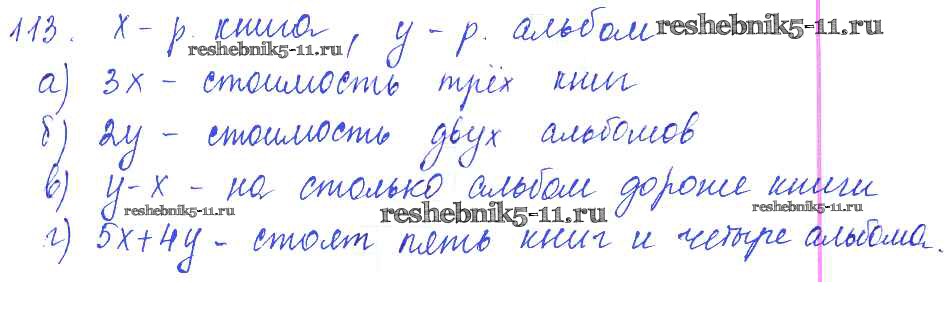 113. х - р. книга, у - р. альбом reshebnik5-11.ru
reshebnik5-11.ru
а) 3х - стоимость трёх книг
б) 2у - стоимость двух альбомов
в) у-х - на столько альбом дороже книги
reshebnik5-11.ru reshebnik5-11.ru reshebnik5-11.ru
г) 5х+4у - стоят пять книг и четыре альбома.